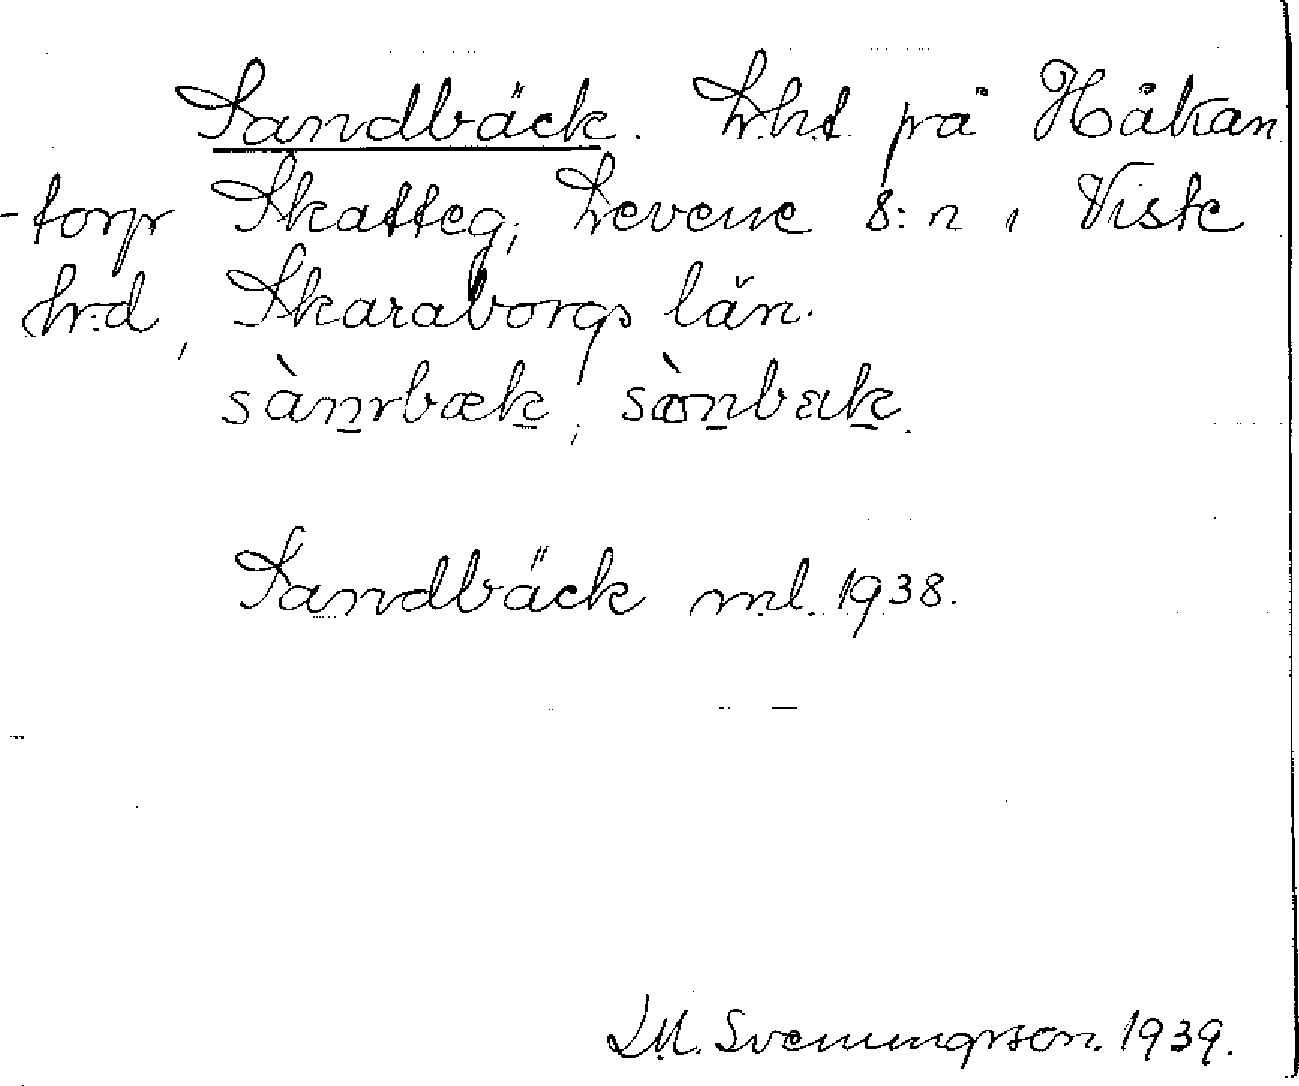 Sandbäck. Lht på Håkan
-torp Skatteg, Levene s:n, Viste
hrd, Skaraborgs län.
sànrbæk, sànbæk.
Sandbäck ml. 1938.
D.M. Svenningsson. 1939.